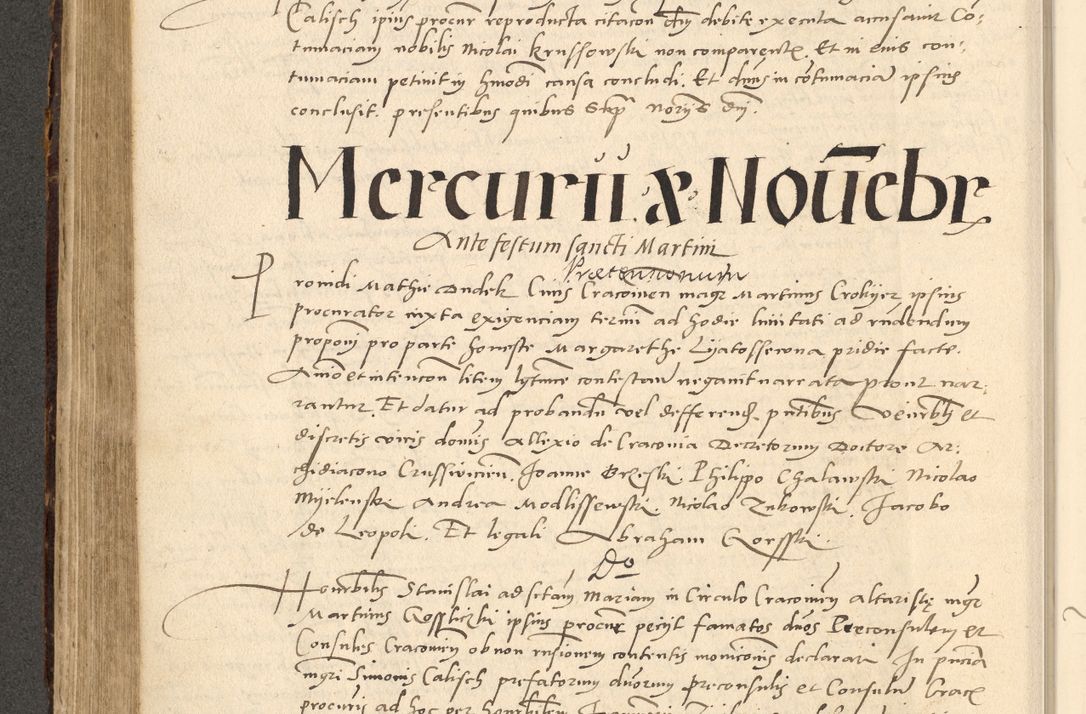 Calisch ipius procur reproducta citacon dni debite executa accusavit Co:
tumaciam nobilis Nicolai Krussowski non comparentẽ. Et in eius con:
tumaciam petiit in hmodi causa concludi. Et dnus in cõtumaciã ipsius
conclusit. presentibus quibus Sup Noriis dni.
Mercurii x Nouẽbr
Ante festum sancti Martini
Prouidi Mathie Dudek Ciuis Cracouien magr Martinus Crokyer ipsius
procurator iuxta exigenciam termi ad hodie limitati ad videndum
proponi pro parte honeste Margarethe Lyatossewna pridie facte.
Animo et intencon litem lgtime contestan negauit narrata prout nar:
rantur. Et datur ad probandu vel defferend. pntibus Venrbli et
discretis viris domis Allexio de Cracouia Decretorum Doctore Ar:
chidiacono Crusswicien. Joanne Brzeski Philippo Chalawski Nicolao
Myelenski Andrea Modlissewski Nicolao Zukowski. Jacobo
de Leopoli. Et legali Abraham Gorsski.
Do
Honrbilis Stanislai ad sctam Mariam in Circulo Cracouien altaristę mgr
Martinus Gossliczki ipsius procur peciit famatos duos Preconsulem et
Consules Cracouien ob non rnsionem contentis moniconis declarari In pncia
mgri Simonis Calisch prefatorum duorum preconsulis et Consulu Crac
procuris ad hoc per honrbilem